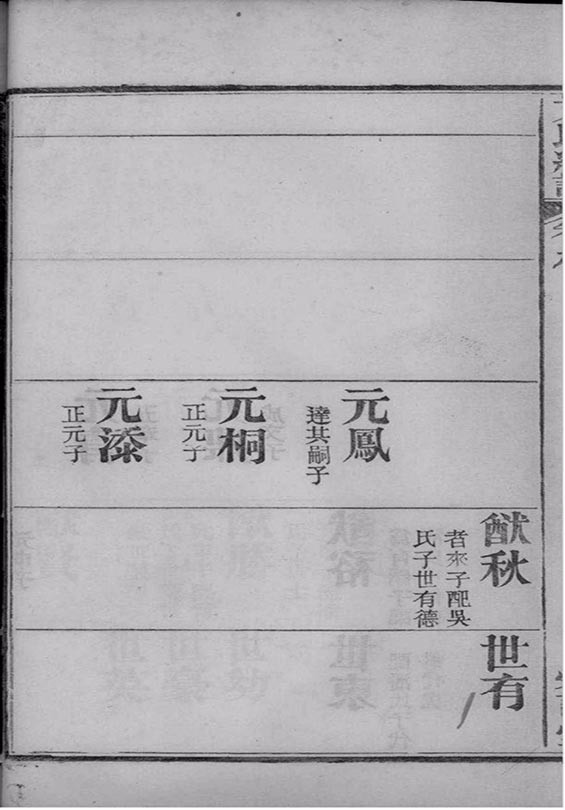 元鳳
達其嗣子
元桐
正元子
元漆
正元子
猷秋
者來子配吳
氏子世有德
世有